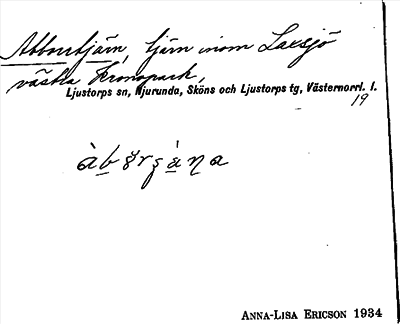 Abborrtjärn, tjärn inom Laxsjö
västra Kronopark,
Ljustorps sn, Njurunda, Sköns och Ljustorps tg, Västernorrl. l.
19
Anna-Lisa Ericson 1934